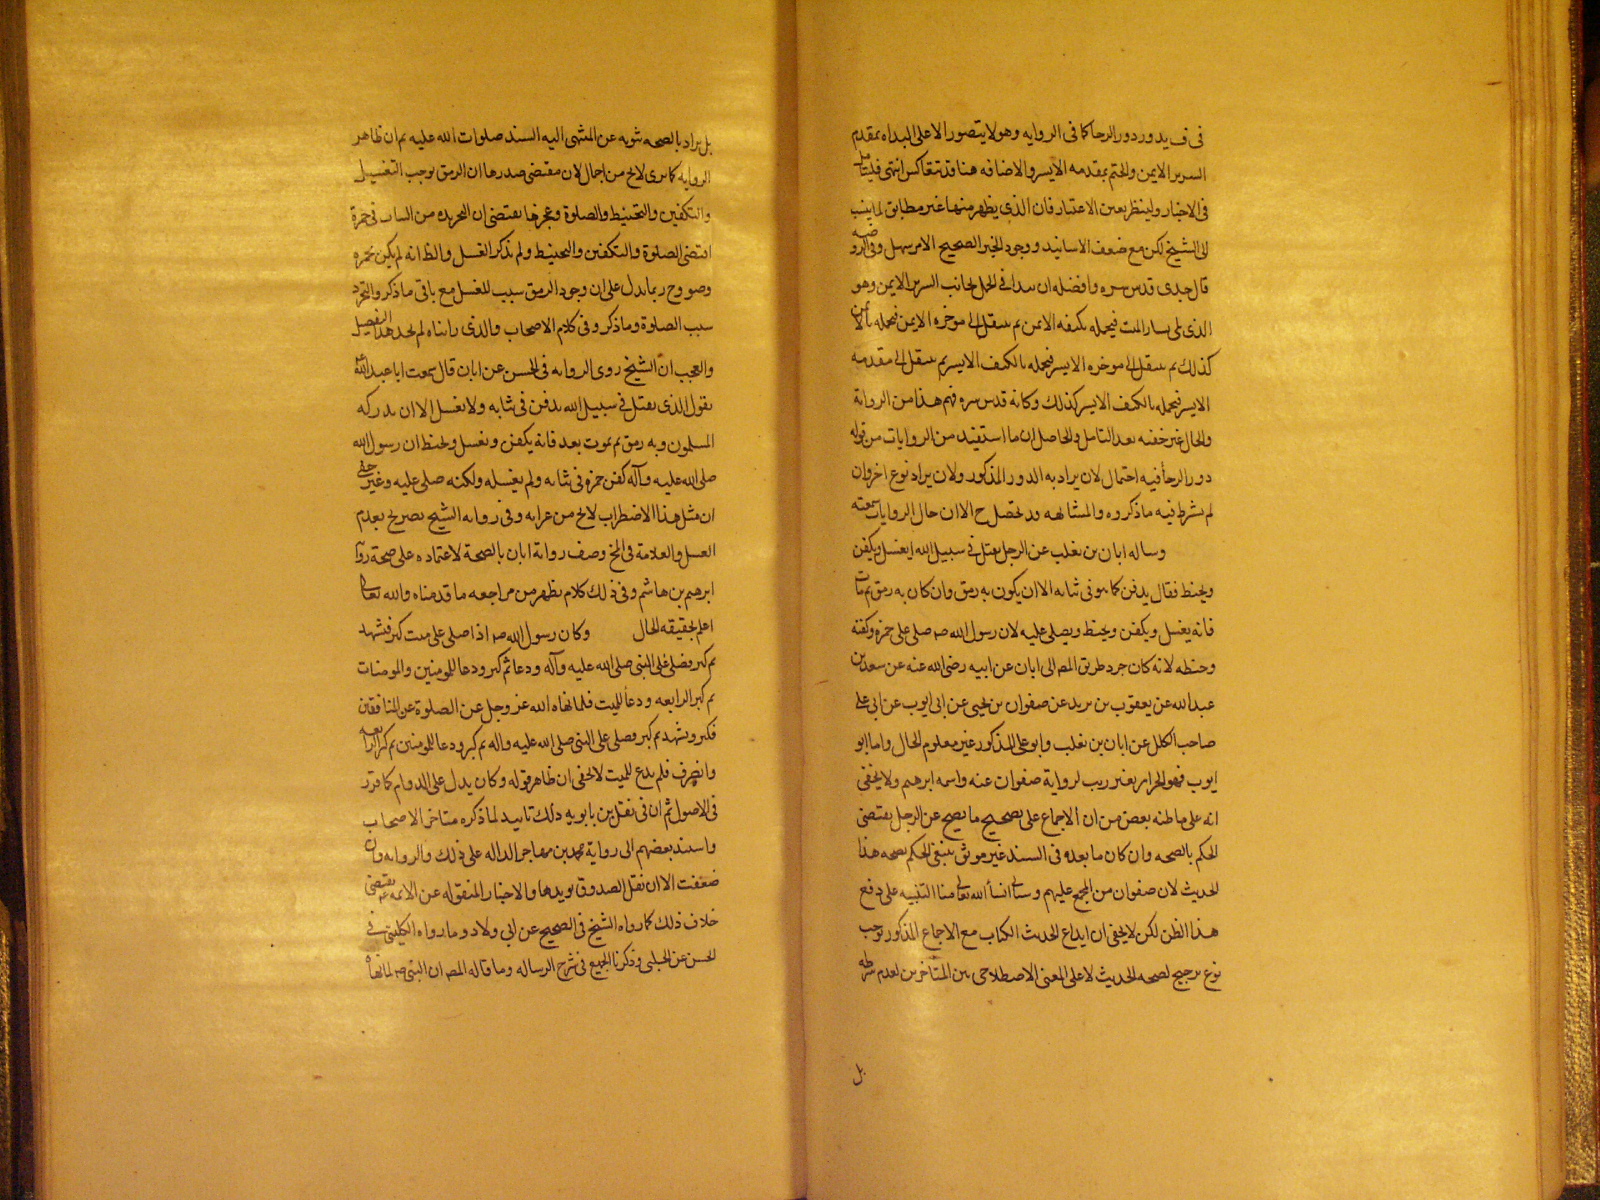 في ف يدور دور الرحا كما في الروايه وهو لا يتصور الا على البداه بمقدم
السرير الايمن والختم بمقدمه الايسر والاضافه هنا قد تتعاكس انتهى فليتامل
في الاخبار ولينظر بعين الاعتبار فان الذي يظهر منها غير مطابق لما ينسب
الى الشيخ لكن مع ضعف الاسانيد ووجود الخبر الصحيح الامر سهل وفي الروضه
قال جدى قدس سره وافضله ان يبدا في الحمل بجانب السرير الايمن وهو
الذى يلى يسار الميت فيحمله بكتفه الايمن ثم ينتقل الى موخره الايمن فيحمله بالايمن
كذلك ثم ينتقل الى موخره الايسر فيحمله بالكتف الايسر ثم ينتقل الى مقدمه
الايسر فيحمله بالكتف الايسر كذلك وكانه قدس سره فهم هذا من الرواية
والحال غير خفيه بعد التامل والحاصل ان ما استفيد من الروايات من قوله
دور الرحا فيه احتمال لان يراد به الدور المذكور ولان يراد نوع اخر وان
لم يشرط فيه ما ذكروه والمشابهه قد تحصل ح الا ان حال الروايات سمعته
وساله ابان بن تغلب عن الرجل يقتل في سبيل الله ايغسل ويكفن
ويحنط فقال يدفن كما هو في ثيابه الا ان يكون به رمق وان كان به رمق ثم مات
فانه يغسل ويكفن ويحنط ويصلى عليه لان رسول الله صه صلى على حمزه وكفنه
وحنطه لانه كان جرد طريق المصه الى ابان عن ابيه رضى الله عنه عن سعد بن
عبد الله عن يعقوب بن يزيد عن صفوان بن يحيى عن ابى ايوب عن ابى على
صاحب الكلل عن ابان بن تغلب وابو على المذكور غير معلوم الحال واما ابو
ايوب فهو الخراز بغير ريب لرواية صفوان عنه واسمه ابرهيم ولا يخفى
انه على ما ظنه بعض من ان الاجماع على تصحيح ما يصح عن الرجل يقتضى
الحكم بالصحه وان كان ما بعده في السند غير موثق ينبغى الحكم بصحه هذا
الحديث لان صفوان من المجمع عليهم وسياتى انشأ الله تعالى منا التنبيه على دفع
هذا الظن لكن لا يخفى ان ايداع الحديث الكتاب مع الاجماع المذكور يوجب
نوع ترجيح لصحه الحديث لا على المعنى الاصطلاحى بين المتأخرين لعدم شرطه
بل
بل يراد بالصحه ثبوته عن المنتهى اليه السند صلوات الله عليه ثم ان ظاهر
الروايه كما ترى لا يخ من اجمال لان مقتضى صدرها ان الرمق يوجب التغسيل
والتكفين والتحنيط والصلوة وعجزها يقتضى ان التجريد من الثياب في حمزة
اقتضى الصلوة والتكفين والتحنيط ولم يذكر الغسل والظ انه لم يكن في حمزه
وصو وح ربما يدل على ان وجود الرمق سبب للغسل مع باقى ما ذكر والتجرد
سبب الصلوة وما ذكر وفي كلام الاصحاب والذى رايناه لم نجد هذا التفصيل
والعجب ان الشيخ روى الروايه في الحسن عن ابان قال سمعت ابا عبد الله
يقول الذى يقتل في سبيل الله يدفن في ثيابه ولا يغسل الا ان يدركه
المسلمون وبه رمق ثم يموت بعد فانه يكفن ويغسل ويحنط ان رسول الله
صلى الله عليه وآله كفن حمزه في ثيابه ولم يغسله ولكنه صلى عليه وغير خفى
ان مثل هذا الاضطراب لا يخ من غرابه وفي روايه الشيخ تصريح بعدم
الغسل والعلامة في المخ وصف رواية ابان بالصحة لاعتماده على صحة روايه
ابرهيم بن هاشم وفي ذلك كلام يظهر من مراجعه ما قدمناه والله تعالى
اعلم بحقيقه الحال وكان رسول الله صه اذا صلى على ميت كبر فتشهد
ثم كبر فصلى على النبى صلى الله عليه وآله ودعا ثم كبر ودعا للمومنين والمومنات
ثم كبر الرابعه ودعا للميت فلما نهاه الله عز وجل عن الصلوة عن المنافقين
فكبر وتشهد ثم كبر وصلى على النبى صلى الله عليه واله ثم كبر ودعا للمومنين ثم كبر الرابعه
وانصرف فلم يدع للميت لا يخفى ان ظاهر قوله وكان يدل على الدوام كما قرر
في الاصول ثم ان في نقل بن بابويه ذلك تاييد لما ذكره متاخر الاصحاب
واستند بعضهم الى رواية محمد بن مهاجر الداله على ذلك والروايه وان
ضعفت الا ان نقل الصدوق يويدها والاخبار المنقوله عن الائمه تقتضى
خلاف ذلك كما رواه الشيخ في الصحيح عن ابى ولاد وما رواه الكلينى في
الحسن عن الحلبى وذكرنا الجميع في شرح الرساله وما قاله المصه ان النبى صه لما نهاه